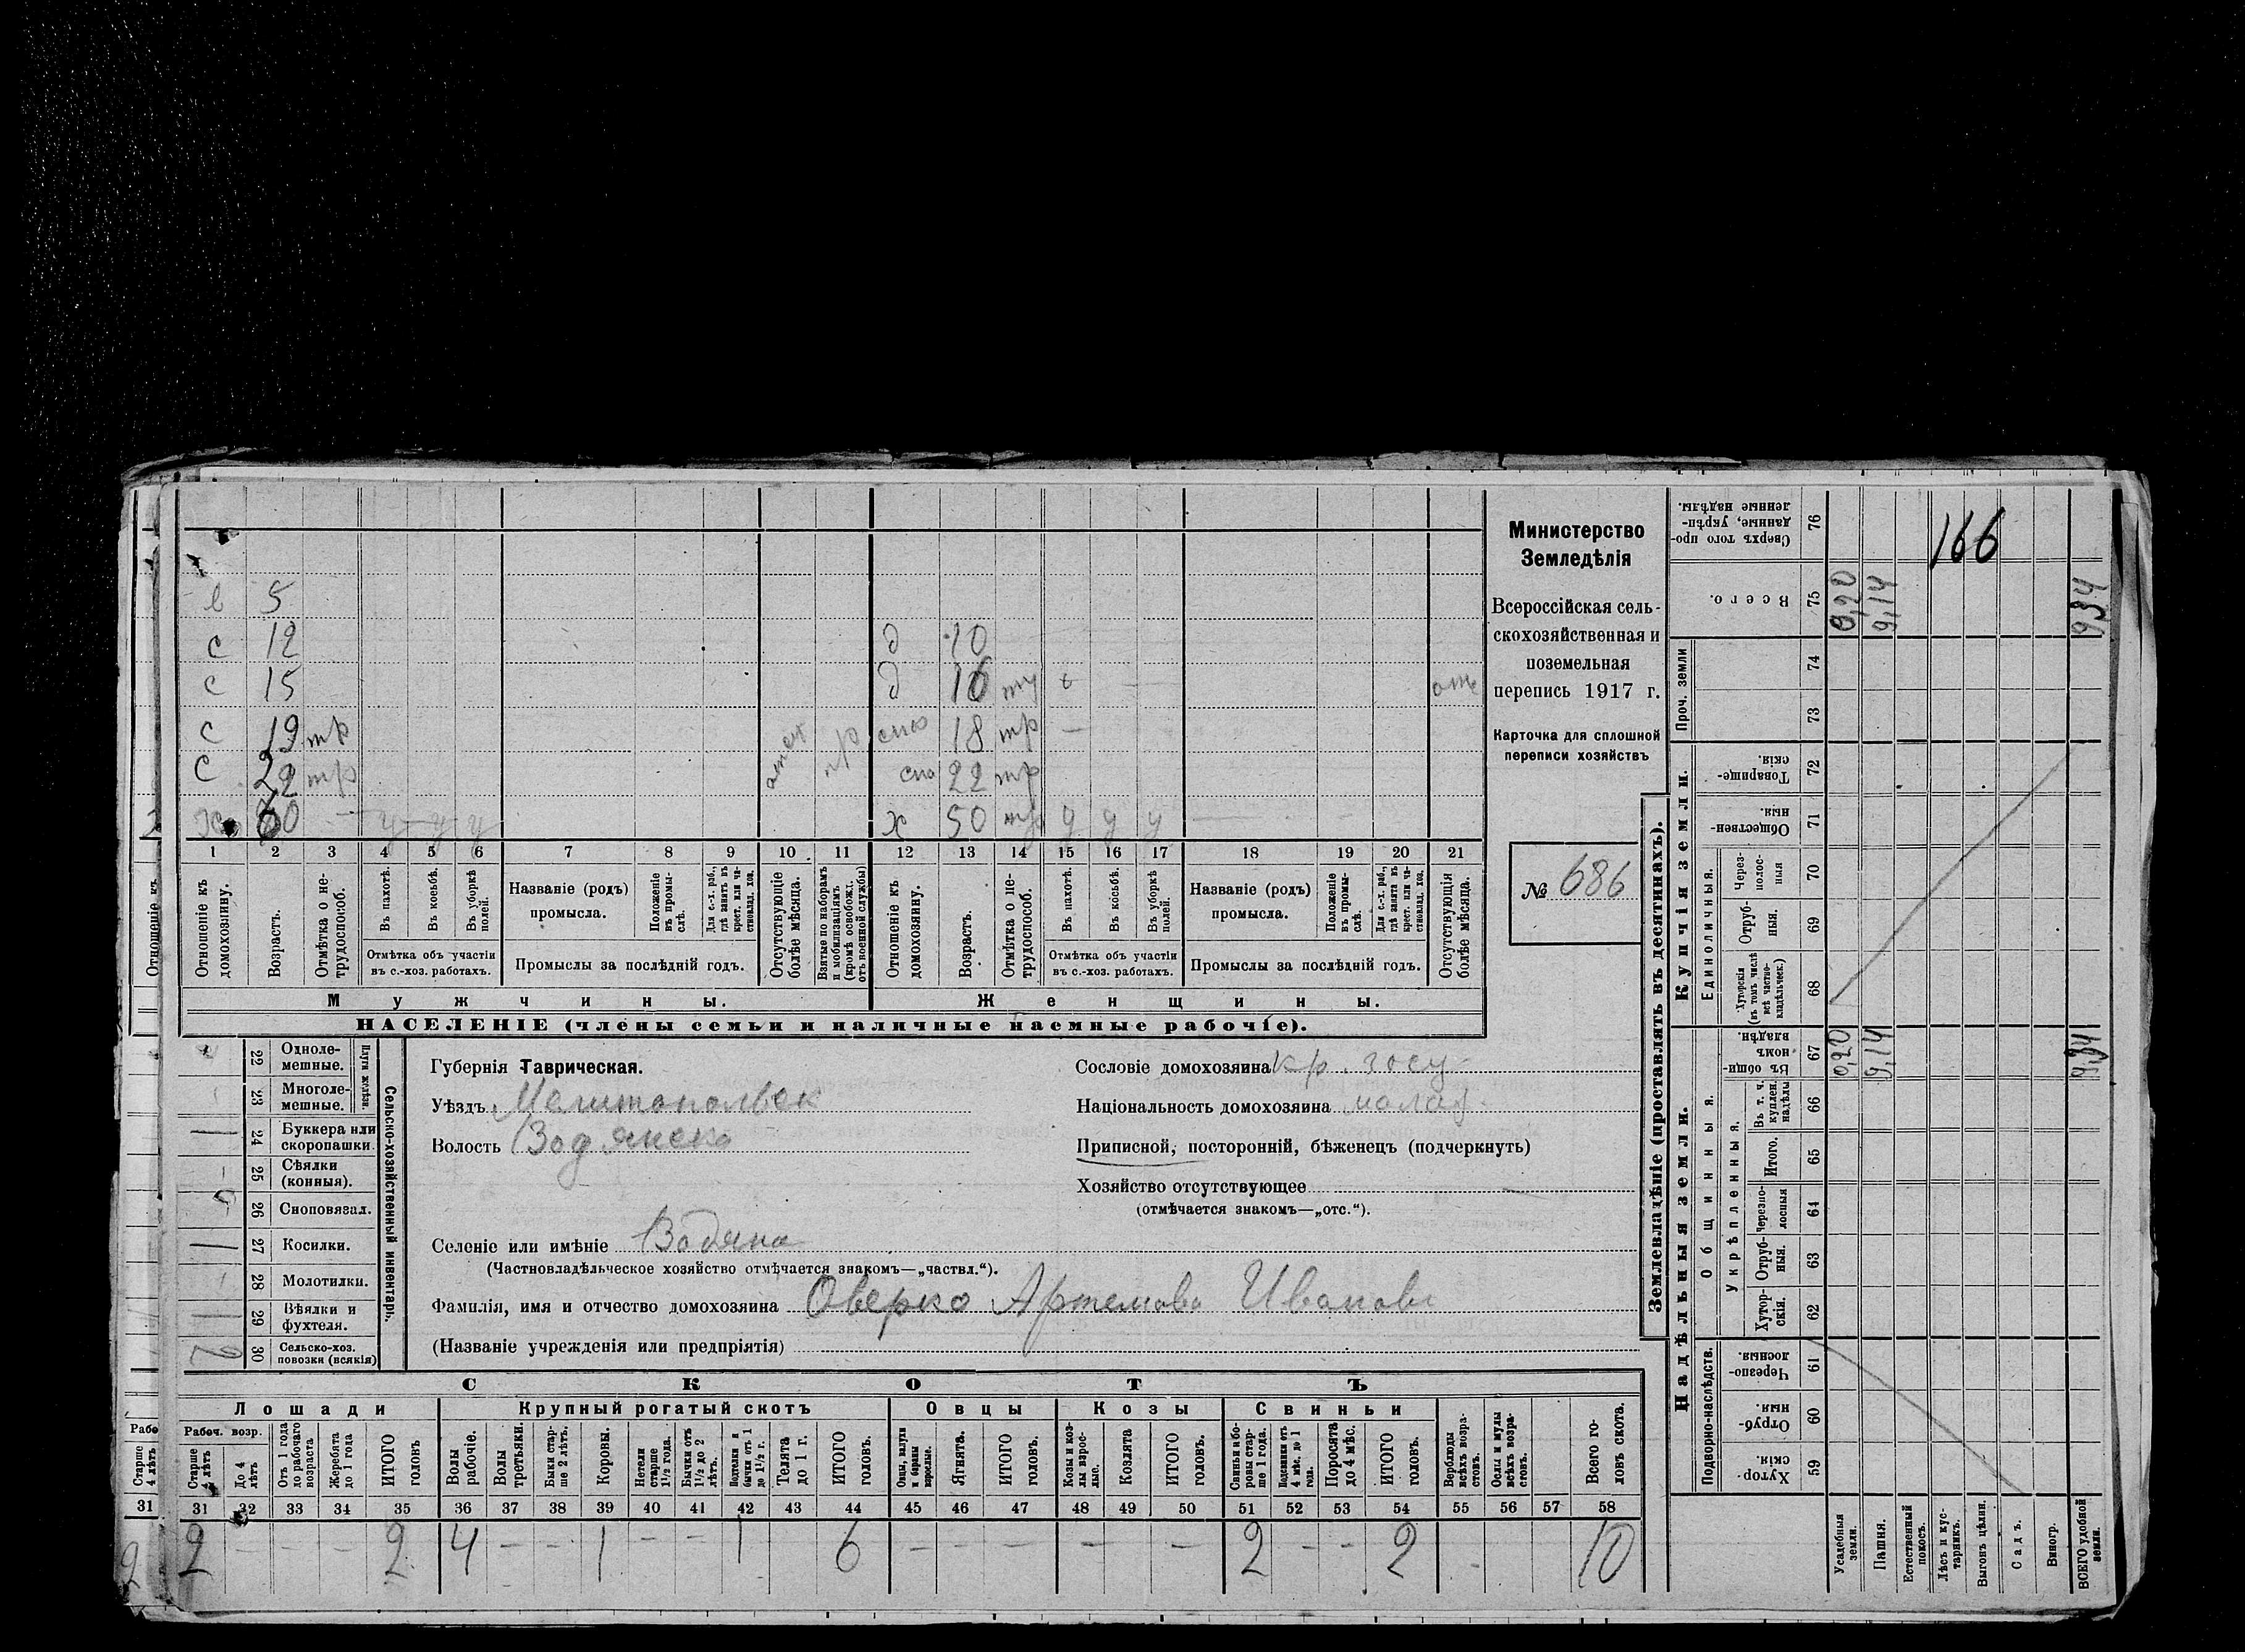 Министерство
Земледѣлія
Всероссійская сель-
скохозяйственная и
поземельная
перепись 1917 г.
Карточка для сплошной
переписи хозяйствъ
№ 686
в 5
с 12 д 10
с 15 д 16
с 19 тр 18 тр
с 22 тр 22 тр
60 у у у х 50 тр у у у
1 2 3 4 5 6 7 8 9 10 11 12 13 14 15 16 17 18 19 20 21
Отношеніе къ домохозяину.
Возрастъ.
Отмѣтка о не-трудоспособ.
Въ пахотѣ.
Въ косьбѣ.
Въ уборкѣ полей.
Отмѣтка объ участіи
въ с.-хоз. работахъ.
Названіе (родъ)
промысла.
Положеніе въ промы-слѣ.
Для с.-х. раб., гдѣ занятъ въ крест. или ча-стновлад. хоз.
Промыслы за послѣдній годъ.
Отсутствующіе болѣе мѣсяца.
Взятые по наборамъ и мобилизаціямъ (кромѣ освобожд. отъ военной службы)
Отношеніе къ домохозяину.
Возрастъ.
Отмѣтка о не-трудоспособ.
Въ пахотѣ.
Въ косьбѣ.
Въ уборкѣ полей.
Отмѣтка объ участіи
въ с.-хоз. работахъ.
Названіе (родъ)
промысла.
Положеніе въ промы-слѣ.
Для с.-х. раб., гдѣ занята въ крест. или ча-стновлад. хоз.
Промыслы за послѣдній годъ.
Отсутствующія болѣе мѣсяца.
Мужчины. Женщины.
НАСЕЛЕНІЕ (члены семьи и наличные наемные рабочіе).
Сельско-хозяйственный инвентарь.
22 Одноле-мешные.
23 Многоле-мешные.
24 Буккера или скоропашки.
25 Сѣялки (конныя).
26 Сноповязал.
27 Косилки.
28 Молотилки.
29 Вѣялки и фухтеля.
30 Сельско-хоз. повозки (всякія) 2
Губернія Таврическая.
Уѣздъ Мелитопольск
Волость Водянско
Сословіе домохозяина кр. госу
Національность домохозяина
Приписной, посторонній, бѣженецъ (подчеркнуть)
Хозяйство отсутствующее
(отмѣчается знакомъ—„отс.“).
Селеніе или имѣніе Водяна
(Частновладѣльческое хозяйство отмѣчается знакомъ—„частвл.“).
Фамилія, имя и отчество домохозяина Оверко Артемова Иванов
(Названіе учрежденія или предпріятія)
СКОТЪ
Лошади Крупный рогатый скотъ Овцы Козы Свиньи
Рабоч. возр.
Старше 4 лѣтъ
До 4 лѣтъ
Отъ 1 года до рабочаго возраста
Жеребята до 1 года
ИТОГО головъ
Волы рабочіе.
Волы третьяки.
Быки стар-ше 2 лѣтъ.
Коровы.
Нетели старше 1½ года.
Бычки отъ 1½ до 2 лѣтъ.
Подтелки и бычки отъ 1 до 1½ г.
Телята до 1 г.
ИТОГО головъ.
Овцы, валухи и бараны взрослые.
Ягнята.
ИТОГО головъ.
Козы и коз-лы взрос-лые.
Козлята
ИТОГО головъ.
Свиньи и бо-ровы стар-ше 1 года.
Подсвинки отъ 4 мѣс. до 1 года.
Поросята до 4 мѣс.
ИТОГО головъ.
Верблюды всѣхъ возра-стовъ.
Ослы и мулы всѣхъ возра-стовъ.
Всего го-ловъ скота.
31 32 33 34 35 36 37 38 39 40 41 42 43 44 45 46 47 48 49 50 51 52 53 54 55 56 57 58
2 - - - 2 4 - - 1 - - 1 6 - - - - - - 2 - - 2 - 10
Землевладѣніе (проставлять въ десятинахъ).
Надѣльныя земли. Купчія земли. Проч. земли
Подворно-наслѣдств.
Общинныя.
Укрѣпленныя.
Единоличныя.
59 Хутор-скія.
60 Отруб-ныя.
61 Черезпо-лосныя.
62 Хутор-скія.
63 Отруб-ныя.
64 Черезпо-лосныя
65 Итого.
66 Въ т. ч. куплен. надѣлы
67 Въ общи-номъ владѣн.
68 Хуторскія (въ томъ числѣ всѣ частно-владѣльческ.)
69 Отруб-ныя.
70 Через-полос-ныя
71 Обществен-ныя.
72 Товарище-скія.
73
74
75 Всего.
76 Сверхъ того про-данные, укрѣп-ленные надѣлы.
Усадебныя земли. 0,20 0,20
Пашня. 9,14 9,14
Естественный покосъ.
Лѣсъ и кус-тарникъ.
Выгонъ цѣлин.
Садъ.
Виногр.
ВСЕГО удобной земли. 9,34 9,34
166